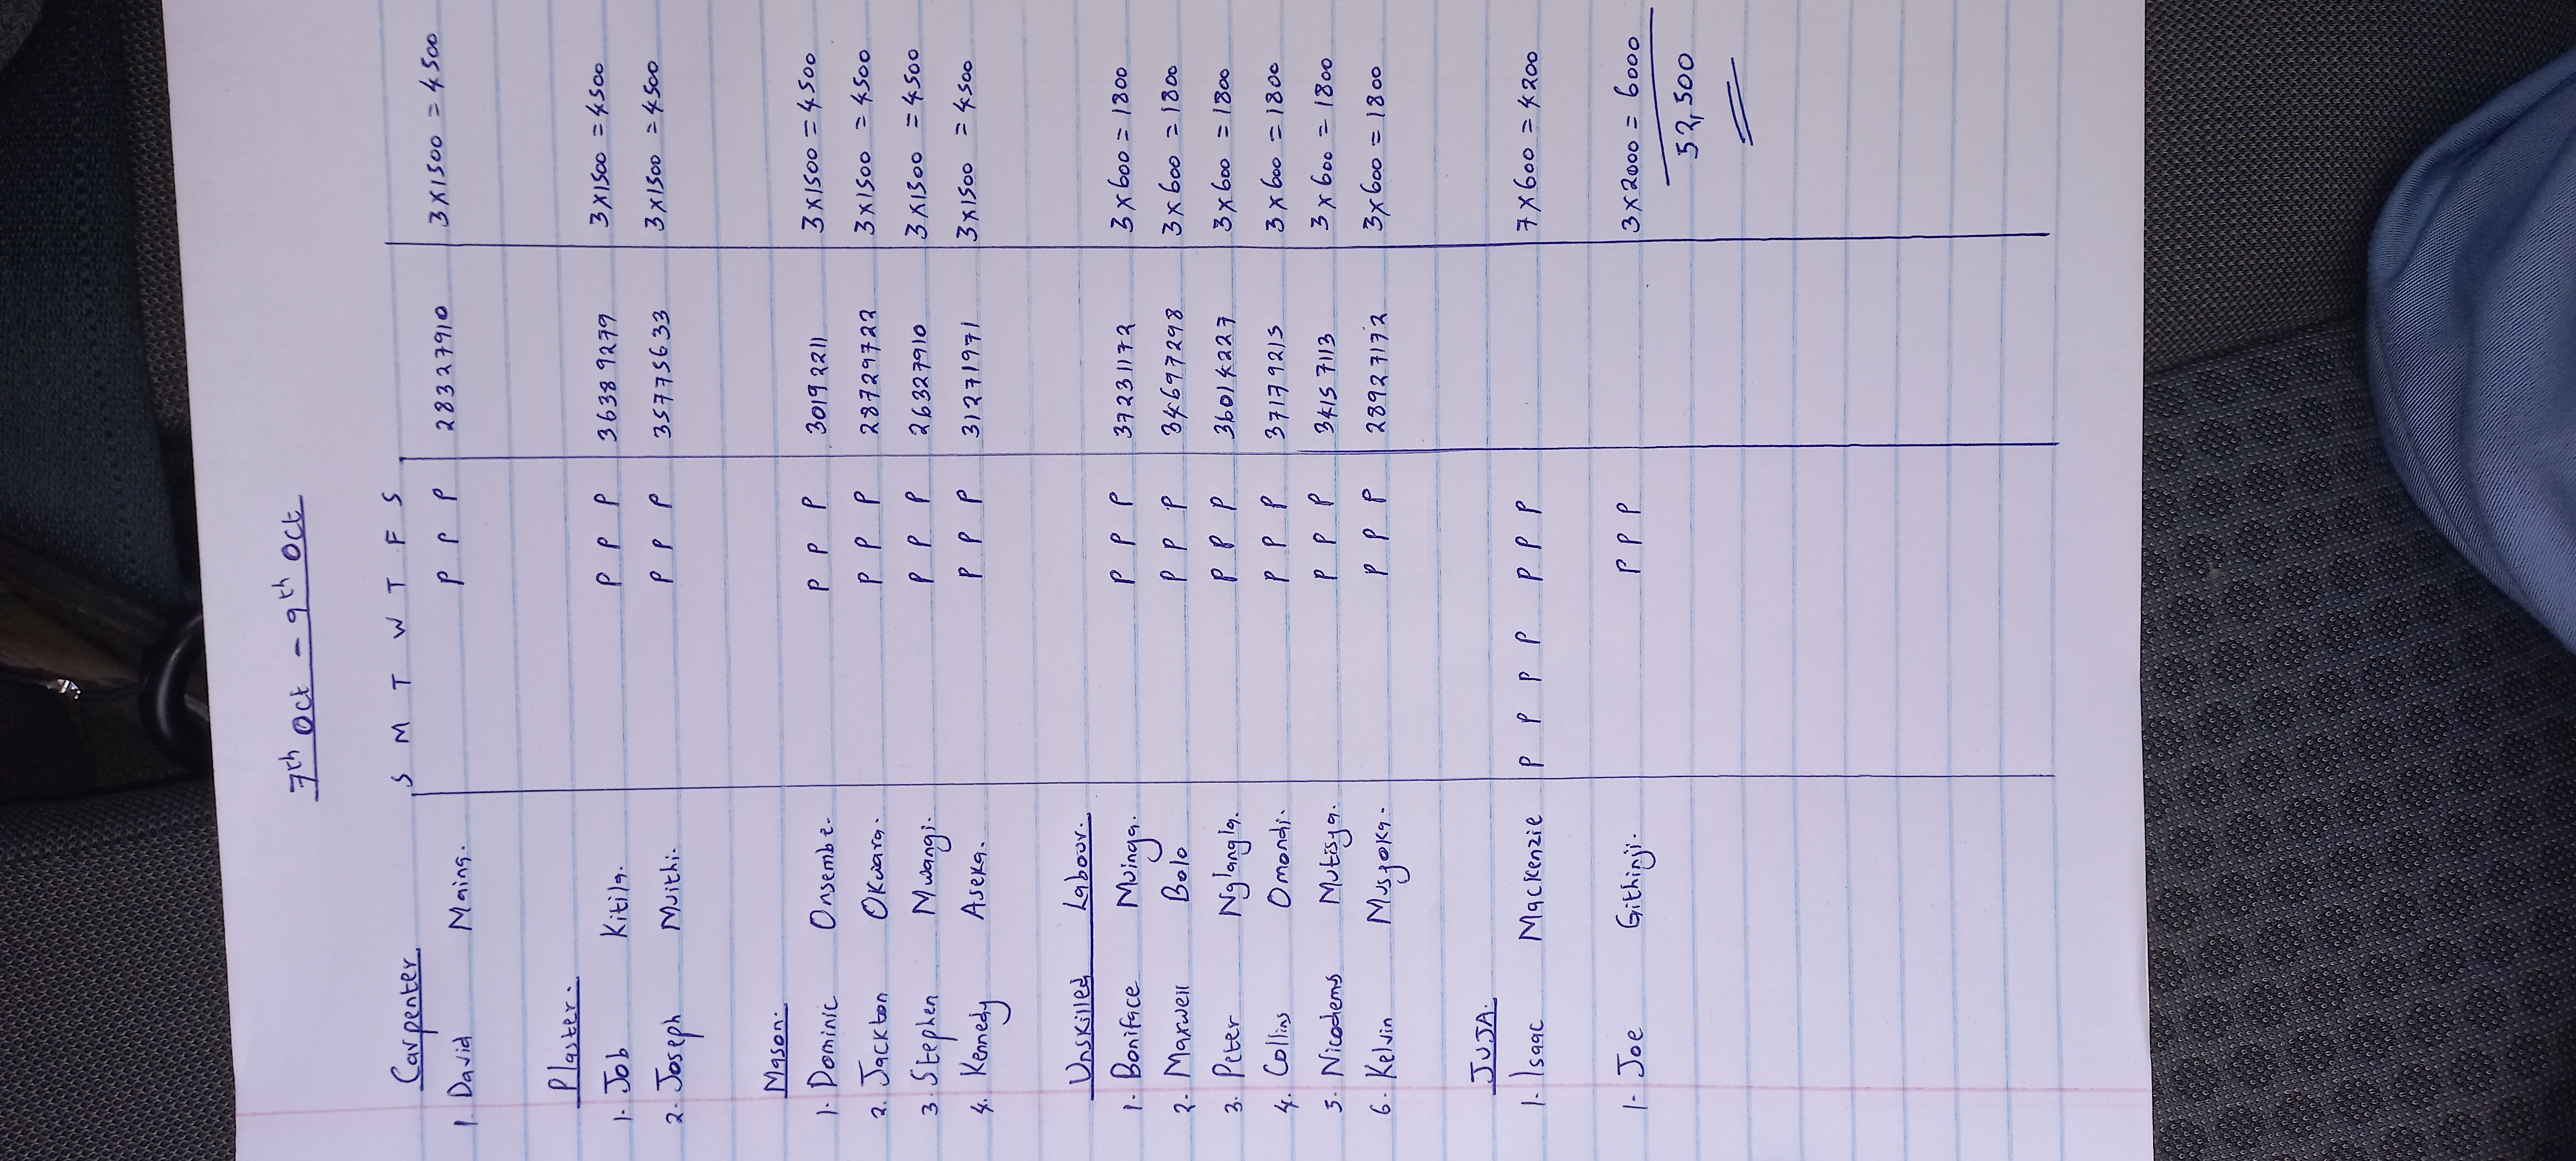 7th Oct - 9th Oct
Carpenter. S M T W T F S
1. David Maina. P P P 28327910 3x1500 = 4500
Plaster.
1. Job Kitila. P P P 36389279 3x1500 = 4500
2. Joseph Muithi. P P P 35775633 3x1500 = 4500
Mason.
1. Dominic Onsembe. P P P 30192211 3x1500 = 4500
2. Jackton Okwara. P P P 28729722 3x1500 = 4500
3. Stephen Mwangi. P P P 26327910 3x1500 = 4500
4. Kennedy Aseka. P P P 31271971 3x1500 = 4500
Unskilled Labour.
1. Boniface Muinga. P P P 37231172 3x600 = 1800
2. Maxwell Bolo P P P 34697298 3x600 = 1800
3. Peter Ng'ang'a. P P P 36014227 3x600 = 1800
4. Collins Omondi. P P P 37179215 3x600 = 1800
5. Nicodems Mutisya. P P P 34157113 3x600 = 1800
6. Kelvin Musyoka. P P P 28927172 3x600 = 1800
JUJA.
1. Isaac Mackenzie P P P P P P P 7x600 = 4200
1. Joe Githinji. P P P 3x2000 = 6000
52,500